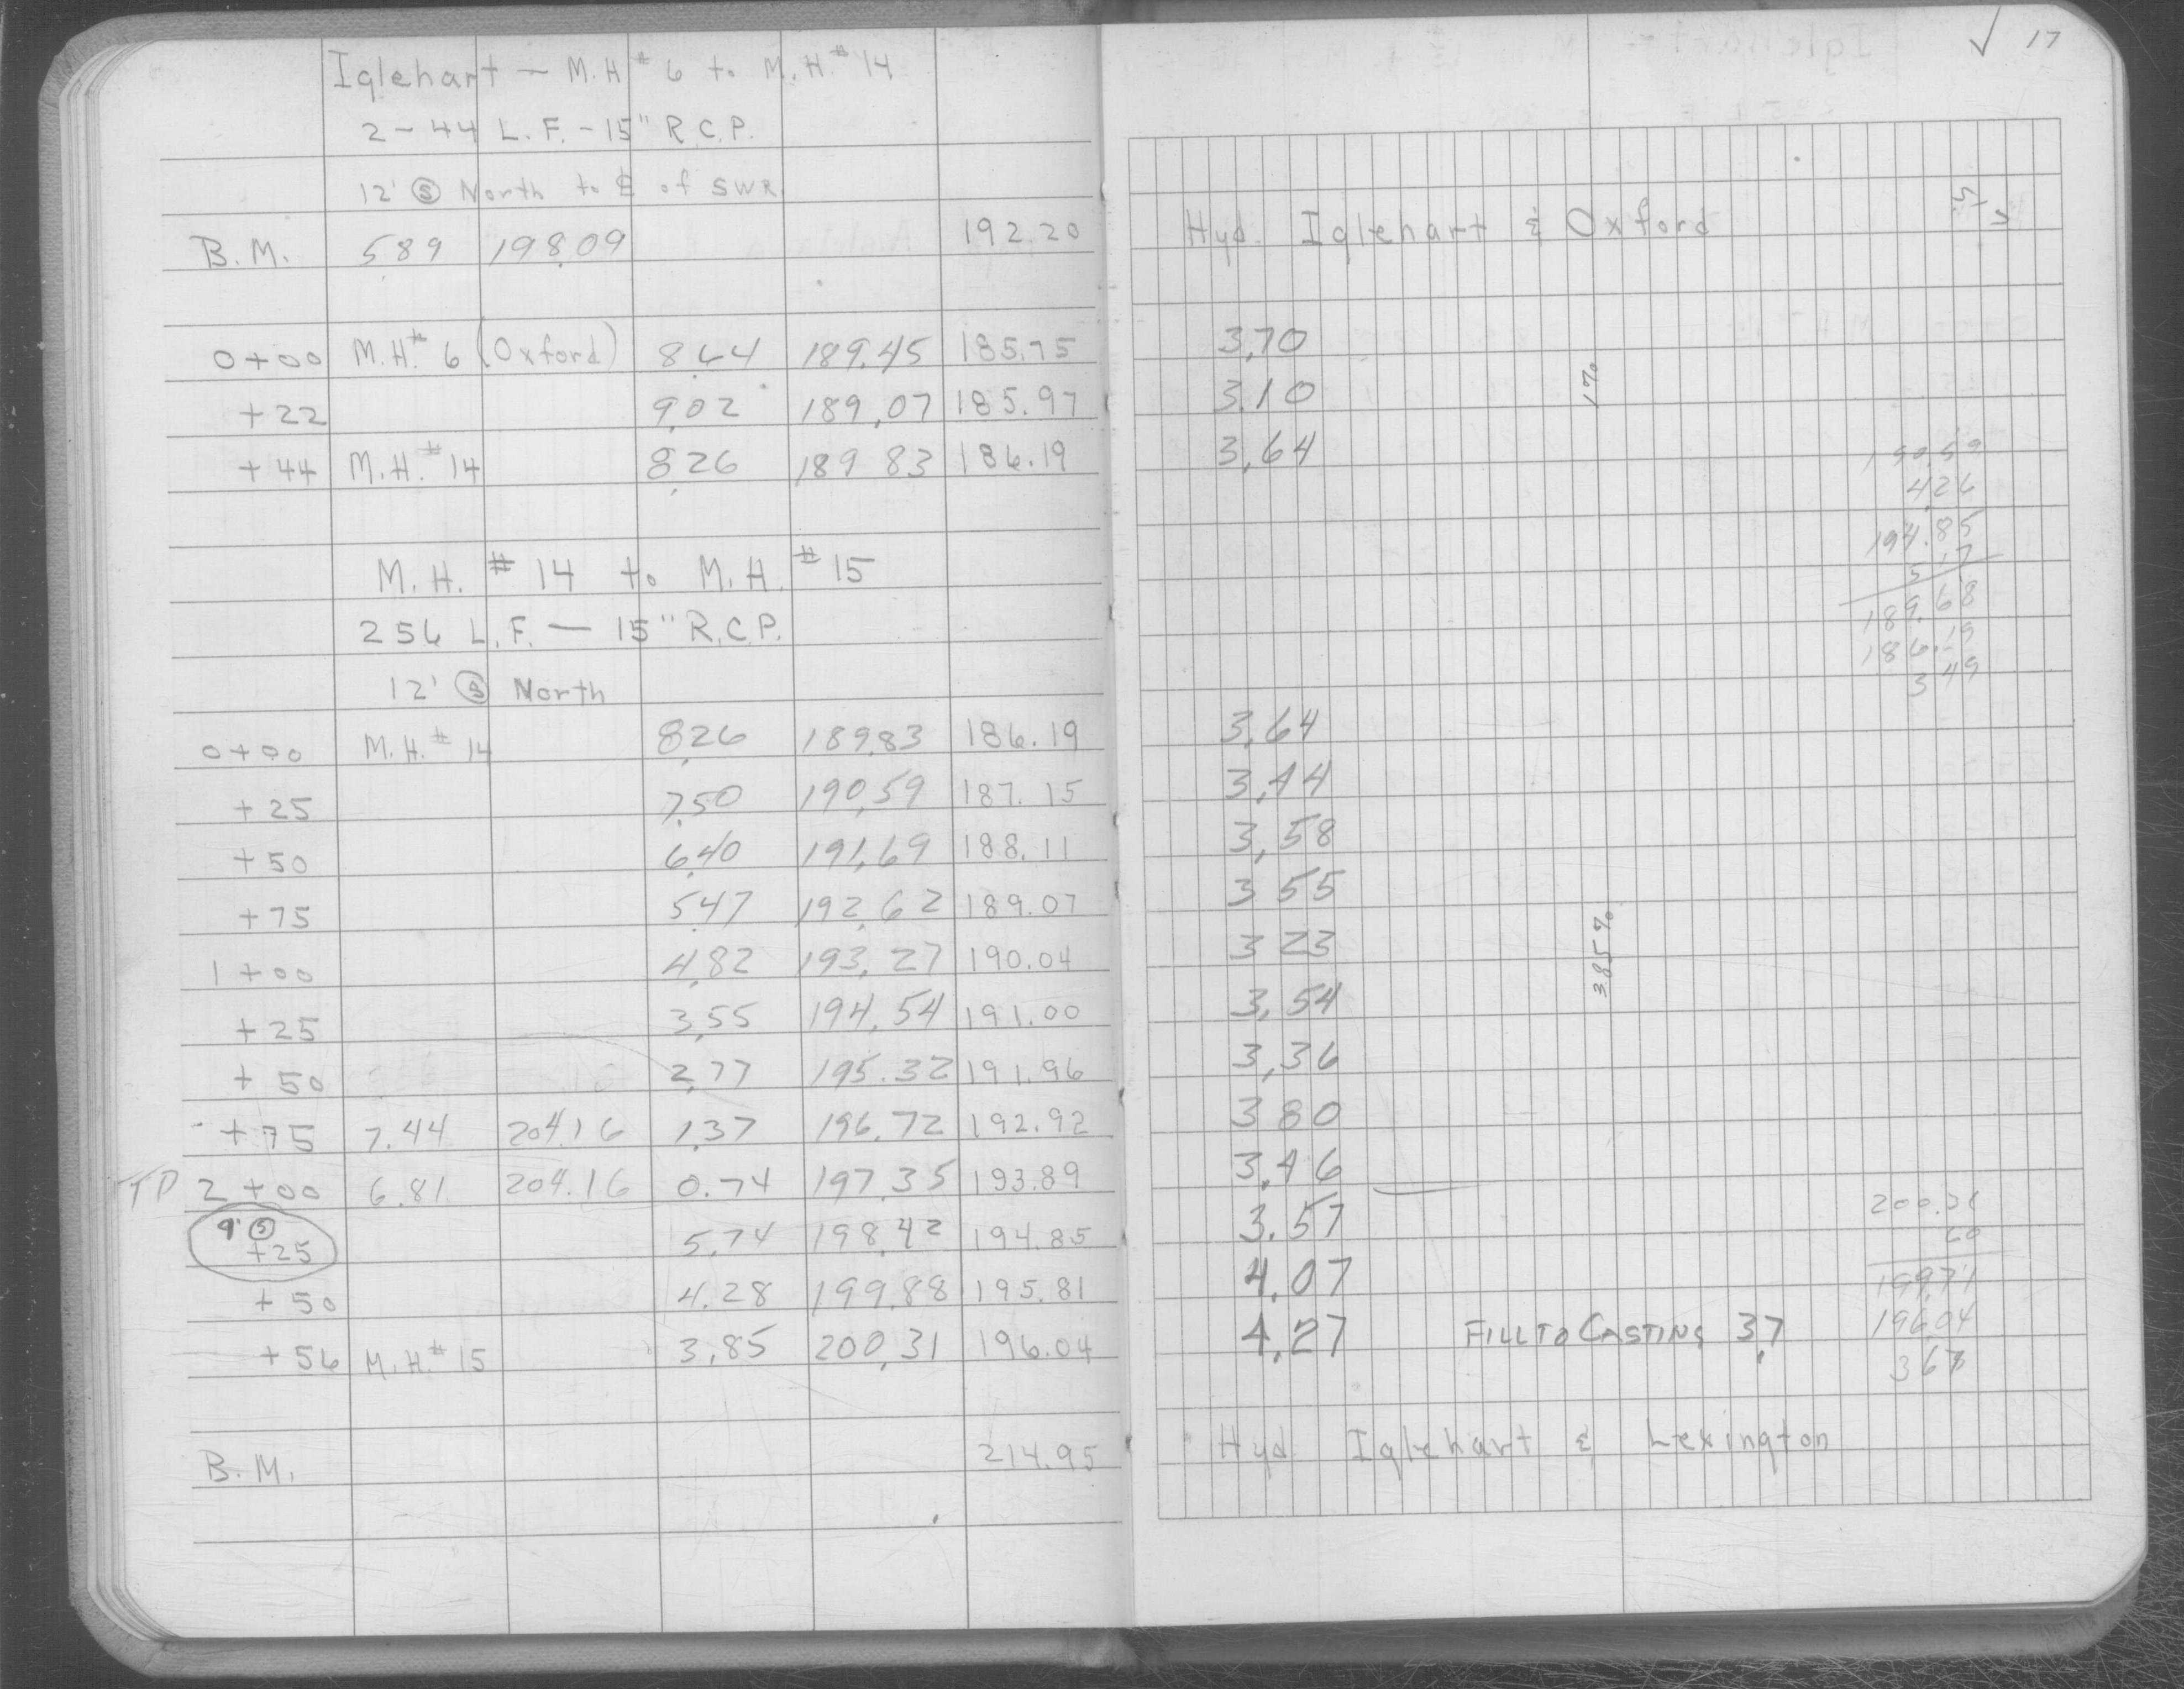 Iglehart — M.H.# 6 to M.H.# 14
2 - 44 L.F. - 15" R.C.P.
12' Ⓢ North to ℄ of SWR.
B.M. 5.89 198.09 192.20
0+00 M.H.# 6 (Oxford) 8.64 189.45 185.75
+22 9.02 189.07 185.97
+44 M.H.# 14 8.26 189 83 186.19
M.H. # 14 to M.H. # 15
256 L.F. — 15" R.C.P.
12' Ⓢ North
0+00 M.H.# 14 8.26 189.83 186.19
+25 7.50 190.59 187.15
+50 6.40 191.69 188.11
+75 5.47 192.62 189.07
1+00 4.82 193.27 190.04
+25 3.55 194.54 191.00
+50 2.77 195.32 191.96
+75 7.44 204.16 1.37 196.72 192.92
TP 2+00 6.81 204.16 0.74 197.35 193.89
9' Ⓢ
+25 5.74 198.42 194.85
+50 4.28 199.88 195.81
+56 M.H.# 15 3.85 200.31 196.04
B.M. 214.95
✓ 17
Hyd. Iglehart & Oxford
3.70
3.10
1%
3.64
190.59
4.26
194.85
5.17
189.68
186.19
3.49
3.64
3.44
3.58
3 55
3 23
3.85%
3.54
3.36
3 80
3.46
3.57
4.07
4.27 FILL TO CASTING 3.7
200.31
60
199.71
196.04
3 67
Hyd. Iglehart & Lexington